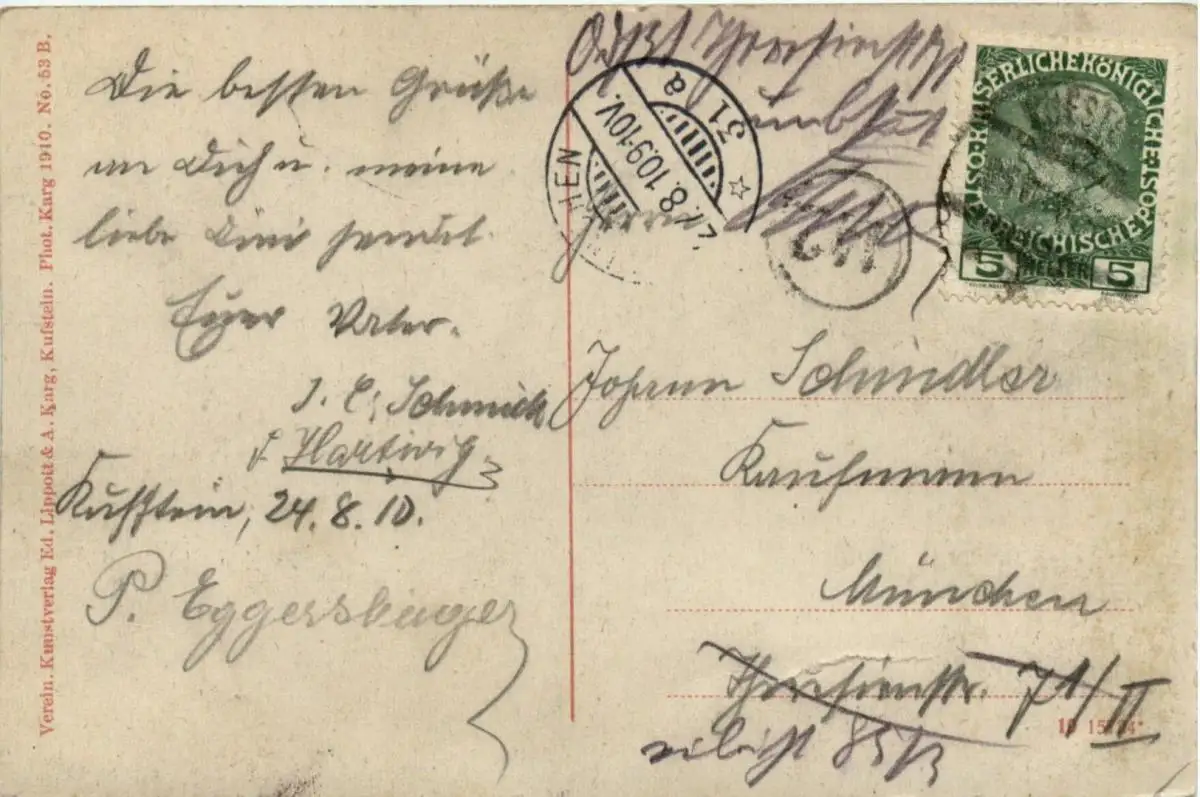 Verein. Kunstverlag Ed. Lippott & A. Karg, Kufstein. Phot. Karg 1910. No. 53 B.
Die besten Grüße
an Dich u. meine
liebe sendet
Euer Vater.
J. E. Schmick
Hartwig
Kufstein, 24. 8. 10.
P.
Theresienstr
31 a
27. 8. 10 9-10 V.
KAISERLICHE KÖNIGLICHE
ÖSTERREICHISCHE POST
5 HELLER 5
Herrn
Johann Schindler
Kaufmann
München
Theresienstr. 71/II
85/